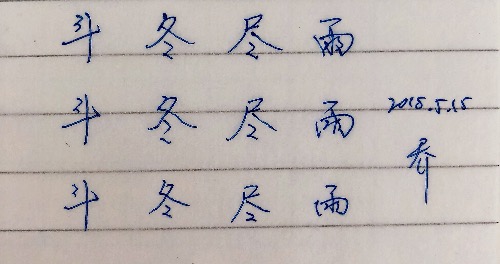 斗 冬 尽 雨
斗 冬 尽 雨
2015.5.15
乔
斗 冬 尽 雨